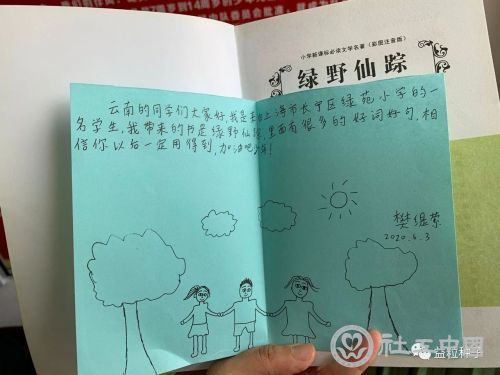 小学新课标必读文学名著（彩图注音版）
绿野仙踪
云南的同学们大家好,我是来自上海市长宁区绿苑小学的一
名学生,我带来的书是绿野仙踪,里面有很多的好词好句,相
信你以后一定用得到,加油吧少年!
樊缇萦
2020.6.3
社工中国
益粒种子